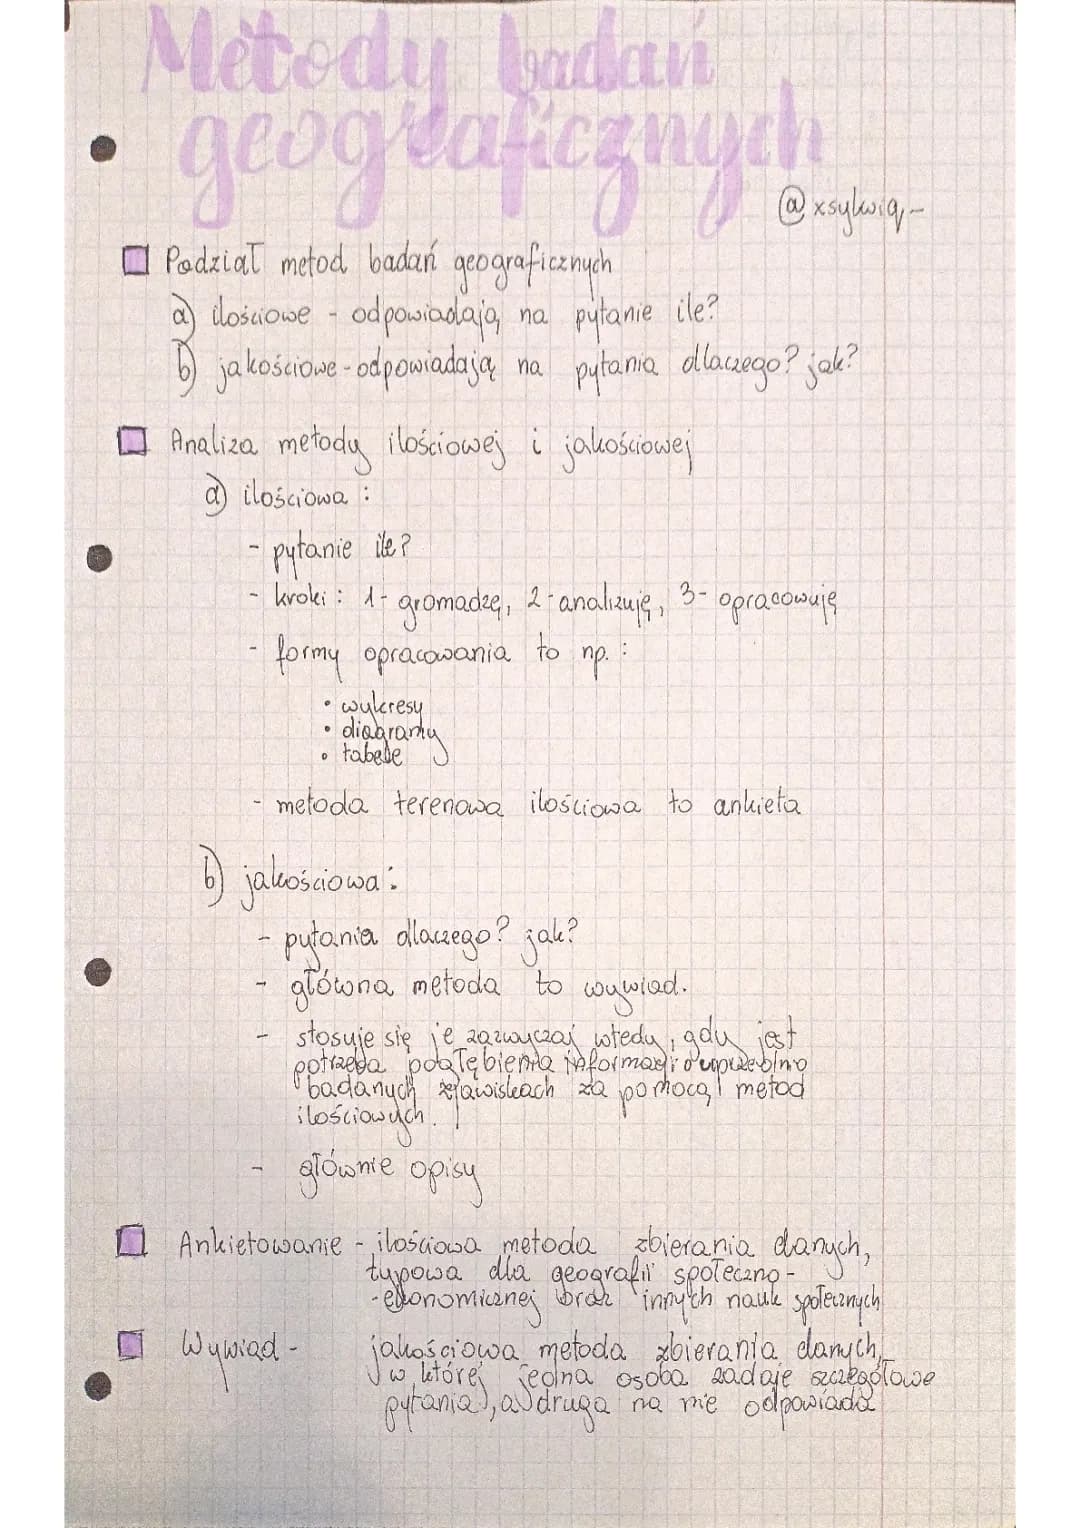 Metody badań
geograficznych
@xsylwią,-
Podział metod badań geograficznych
a) ilościowe - odpowiadają na pytanie ile?
b) jakościowe - odpowiadają na pytania dlaczego? jak?
Analiza metody ilościowej i jakościowej
a) ilościowa :
- pytanie ile?
- kroki : 1- gromadzę, 2-analizuję, 3- opracowuję
- formy opracowania to np. :
• wykresy
• diagramy
• tabele
- metoda terenowa ilościowa to ankieta
b) jakościowa :
- pytania dlaczego? jak?
- główna metoda to wywiad.
- stosuje się je zazwyczaj wtedy, gdy jest
potrzeba pogłębienia informacji o uprzednio
badanych zjawiskach za pomocą metod
ilościowych.
- głównie opisy
Ankietowanie - ilościowa metoda zbierania danych,
typowa dla geografii społeczno-
-ekonomicznej oraz innych nauk społecznych
Wywiad - jakościowa metoda zbierania danych,
w której jedna osoba zadaje szczegółowe
pytania, a druga na nie odpowiada